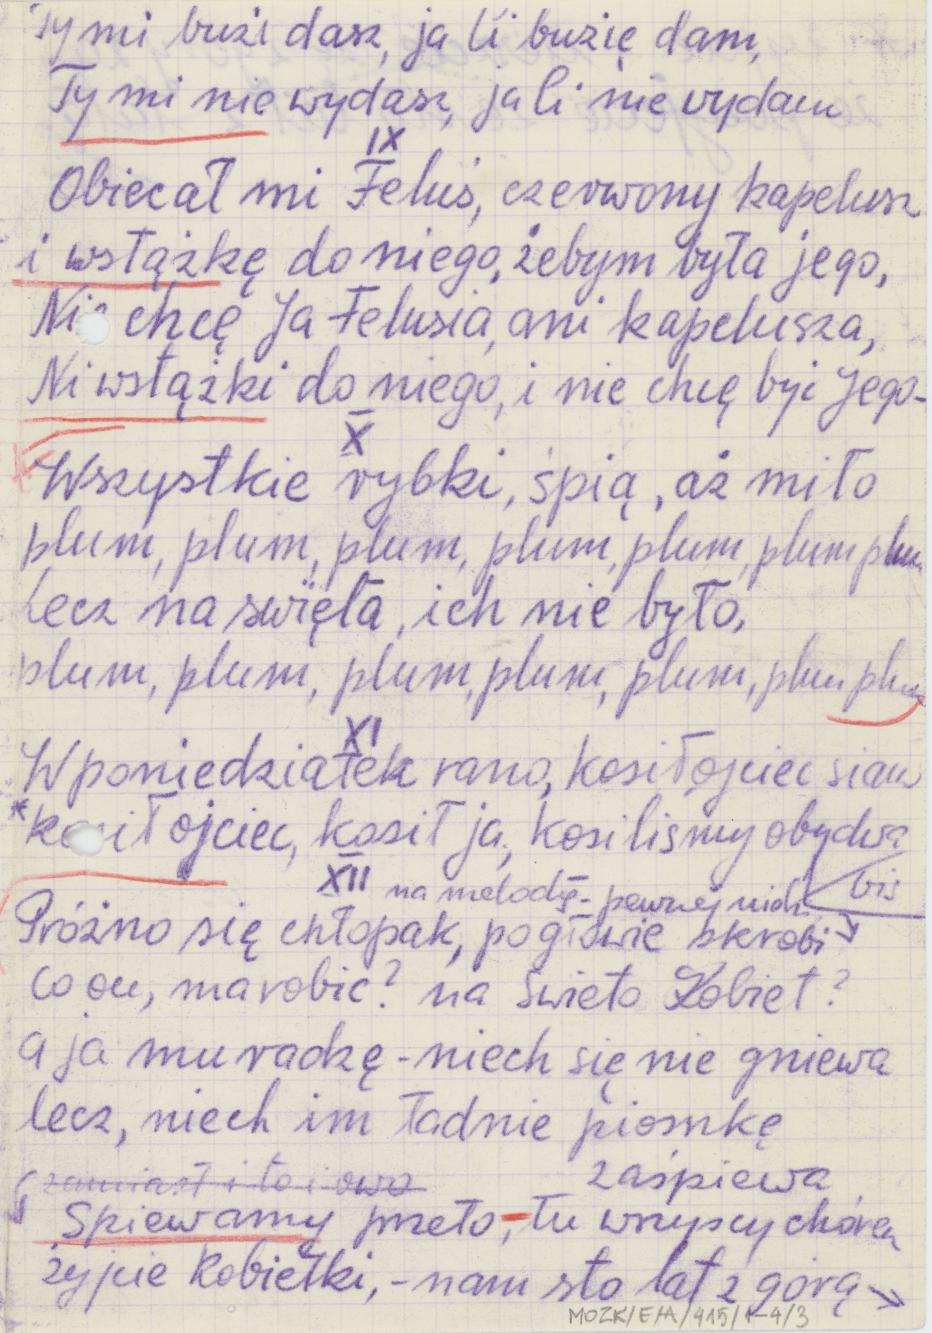 Ty mi buzi dasz, ja Ci buzię dam,
Ty mi nie wydasz, ja Ci nie wydam
IX
Obiecał mi Feluś, czerwony kapelusz
i wstążkę do niego, żebym była jego,
Nie chcę Ja Felusia, ani kapelusza,
Ni wstążki do niego, i nie chcę być Jego-
X
Wszystkie rybki, śpią, aż miło
plum, plum, plum, plum, plum, plum plum
Lecz na święta, ich nie było,
plum, plum, plum, plum, plum, plum plum
XI
W poniedziałek rano, kosił ojciec siano
*kosił ojciec, kosił ja, kosiliśmy obydwa
bis
XII na melodię - pewnej
Próżno się chłopak, po głowie skrobi
Co on, ma robić? na Święto Kobiet?
a ja mu radzę - niech się nie gniewa
lecz, niech im ładnie piosnkę
zaśpiewa
zamiast i to i owo
Spiewamy przeto, - tu wszyscy chórem
żyjcie Kobietki, - nam sto lat z górą →
MOZK/E/A/415/1-4/3